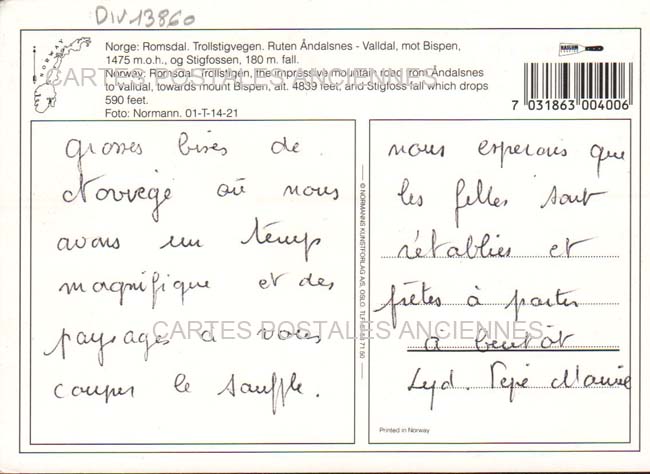 DIV 13860
NORWAY
Norge: Romsdal. Trollstigvegen. Ruten Åndalsnes - Valldal, mot Bispen,
1475 m.o.h., og Stigfossen, 180 m. fall.
Norway: Romsdal. Trollstigen, the impressive mountain road from Åndalsnes
to Valldal, towards mount Bispen, alt. 4839 feet, and Stigfoss fall which drops
590 feet.
Foto: Normann. 01-T-14-21
CARTES POSTALES ANCIENNES
7 031863 004006
grosses bises de
Norvège où nous
avons un temps
magnifique et des
paysages à vous
couper le souffle.
© NORMANNS KUNSTFORLAG A/S, OSLO
nous esperons que
les filles sont
rétablies et
prêtes à partir
a bientôt
Lyd. Pepé
CARTES POSTALES ANCIENNES
Printed in Norway